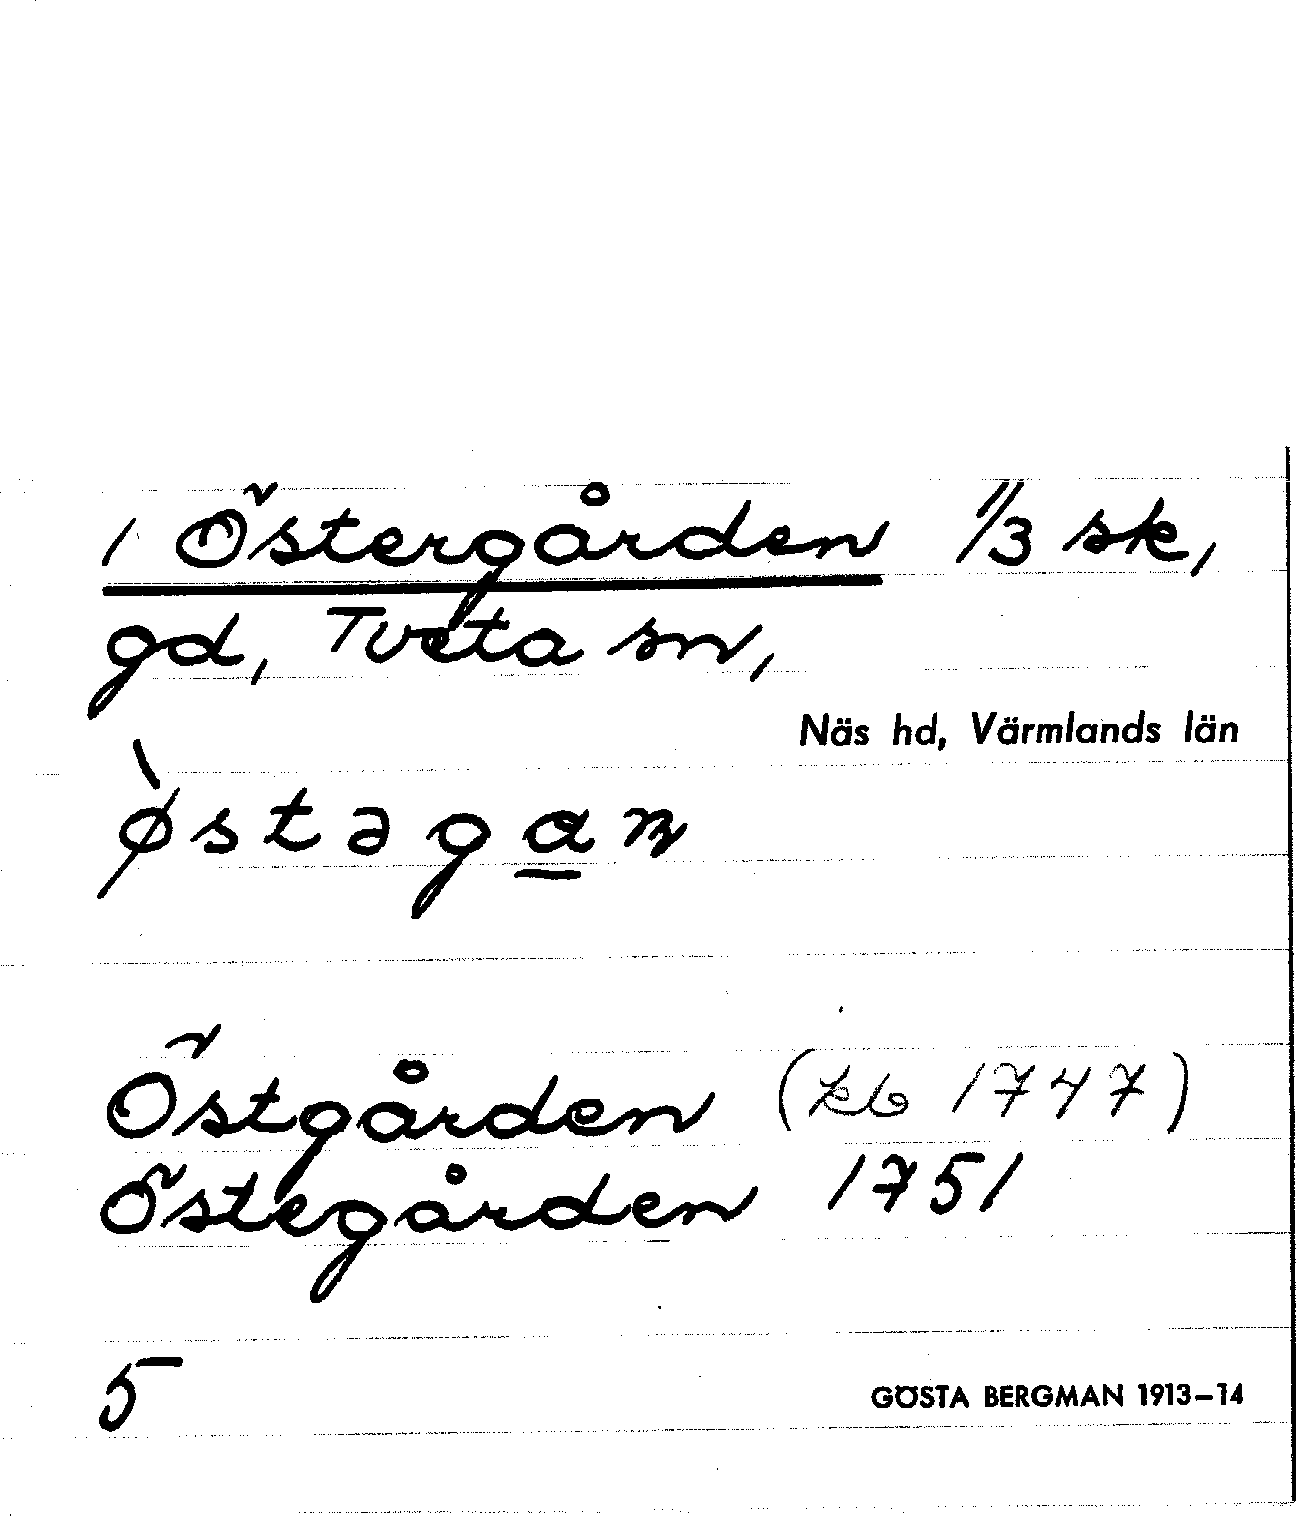 1 Östergården 1/3 sk,
gd, Tveta sn,
Näs hd, Värmlands län
ø̀stəga̲n
Östgården (kb 1747)
Östegården 1751
5
GÖSTA BERGMAN 1913–14